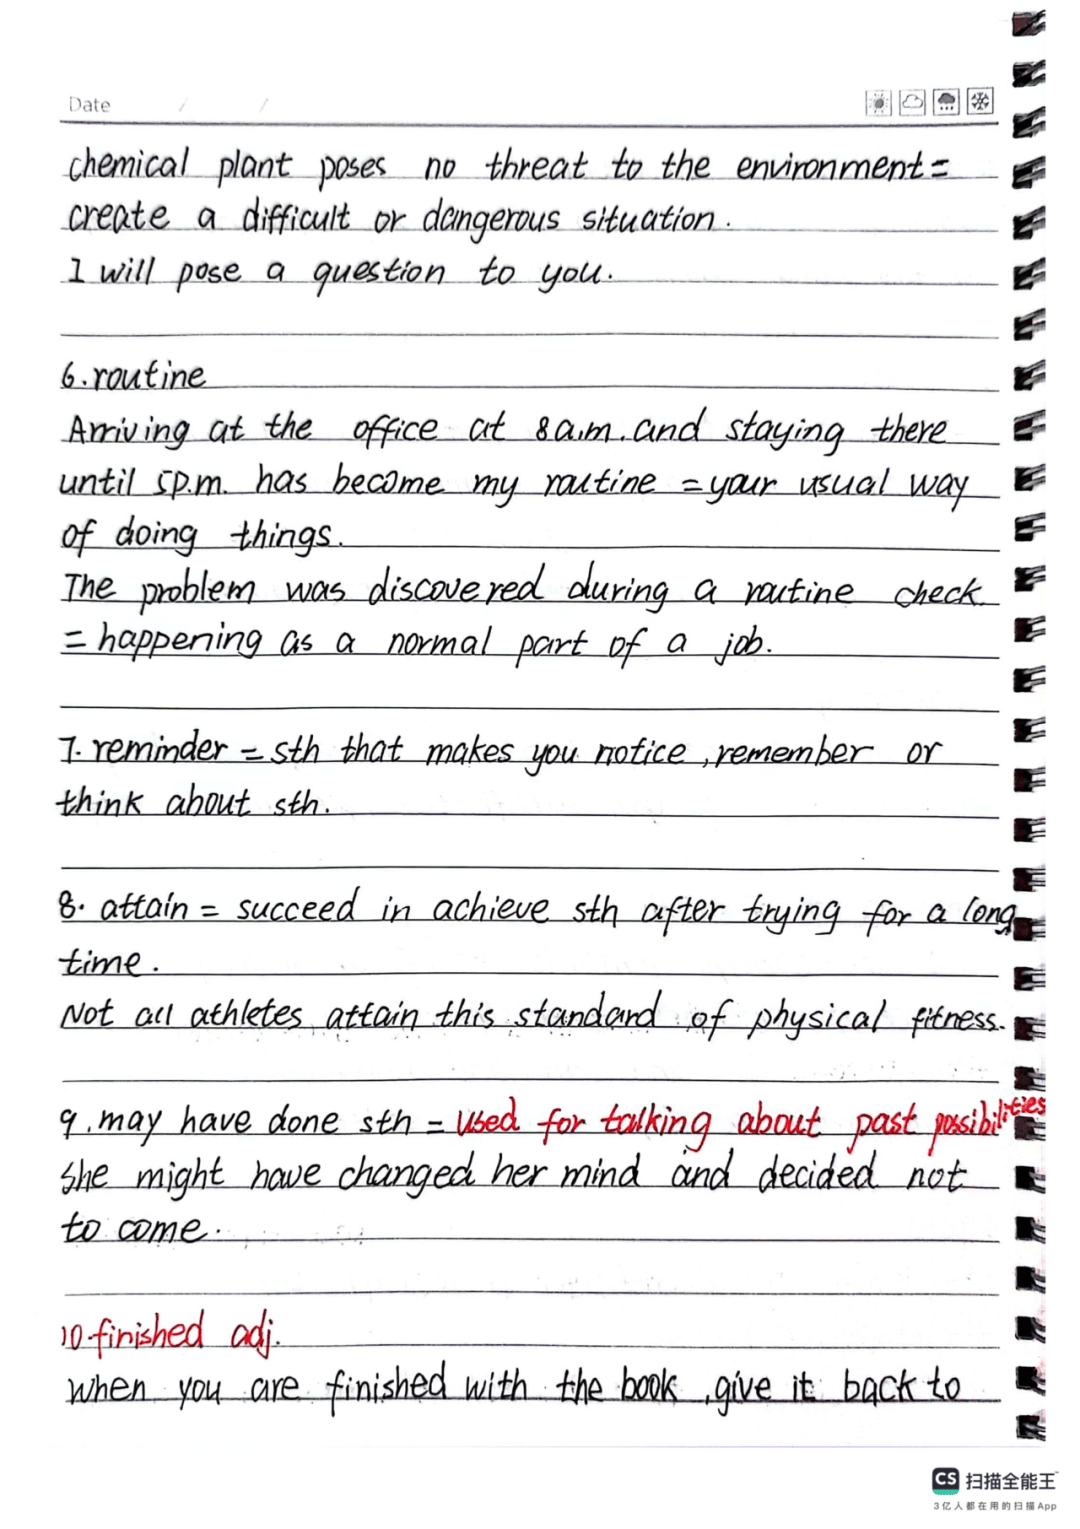 Date / /
chemical plant poses no threat to the environment =
create a difficult or dangerous situation.
I will pose a question to you.
6.routine
Arriving at the office at 8a.m.and staying there
until 5p.m. has become my routine =your usual way
of doing things.
The problem was discovered during a routine check.
= happening as a normal part of a job.
7.reminder = sth that makes you notice ,remember or
think about sth.
8. attain = succeed in achieve sth after trying for a long
time.
Not all athletes attain this standard of physical fitness.
9.may have done sth = used for talking about past possibilities
She might have changed her mind and decided not
to come.
10.finished adj.
When you are finished with the book ,give it back to
CS 扫描全能王
3亿人都在用的扫描App